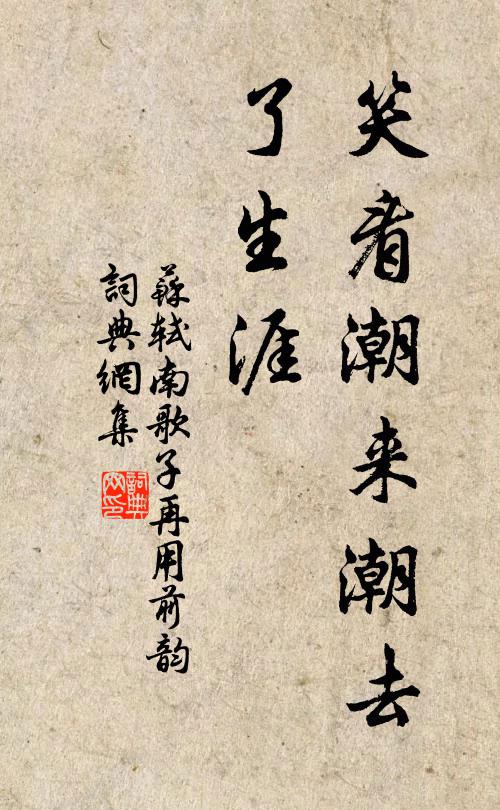 笑看潮来潮去
了生涯
蘇軾南歌子再用前韵
詞典網集
詞典網印